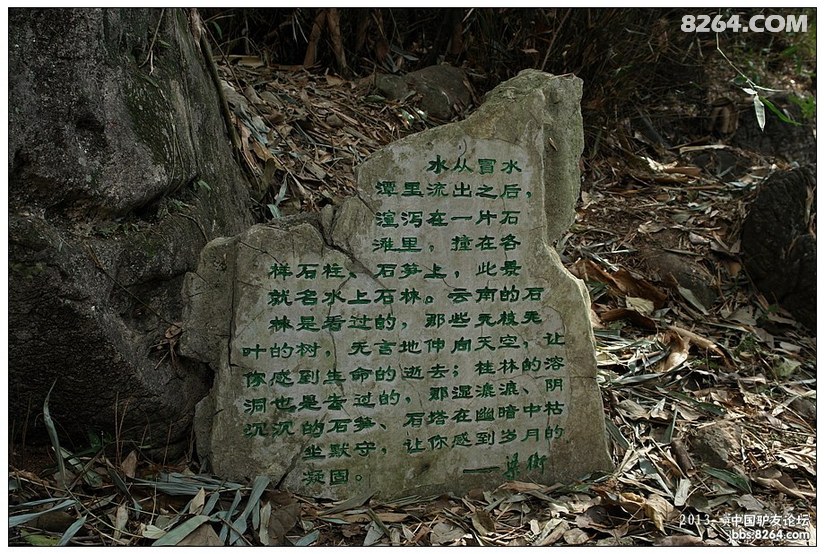 8264.COM
水从冒水
潭里流出之后，
渲泻在一片石
滩里，撞在各
样石柱、石笋上，此景
就名水上石林。云南的石
林是看过的，那些无枝无
叶的树，无言地伸向天空，让
你感到生命的逝去；桂林的溶
洞也是去过的，那湿漉漉、阴
沉沉的石笋、石塔在幽暗中枯
坐默守，让你感到岁月的
凝固。
——梁衡
2013
中国驴友论坛
bbs.8264.com